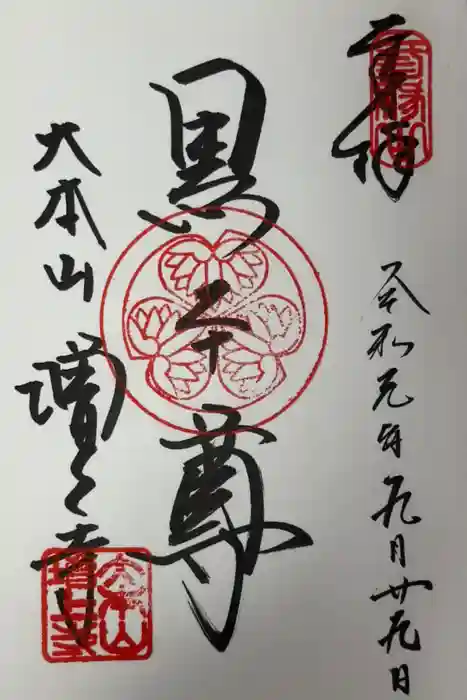 奉拝
令和元年九月廿九日
黒本尊
大本山 増上寺
大本山
増上寺